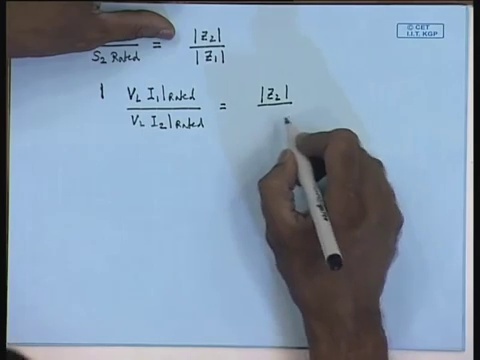 © CET
I.I.T. KGP
S2 Rated = |Z2| / |Z1|
| VL I1|Rated / VL I2|Rated = |Z2|